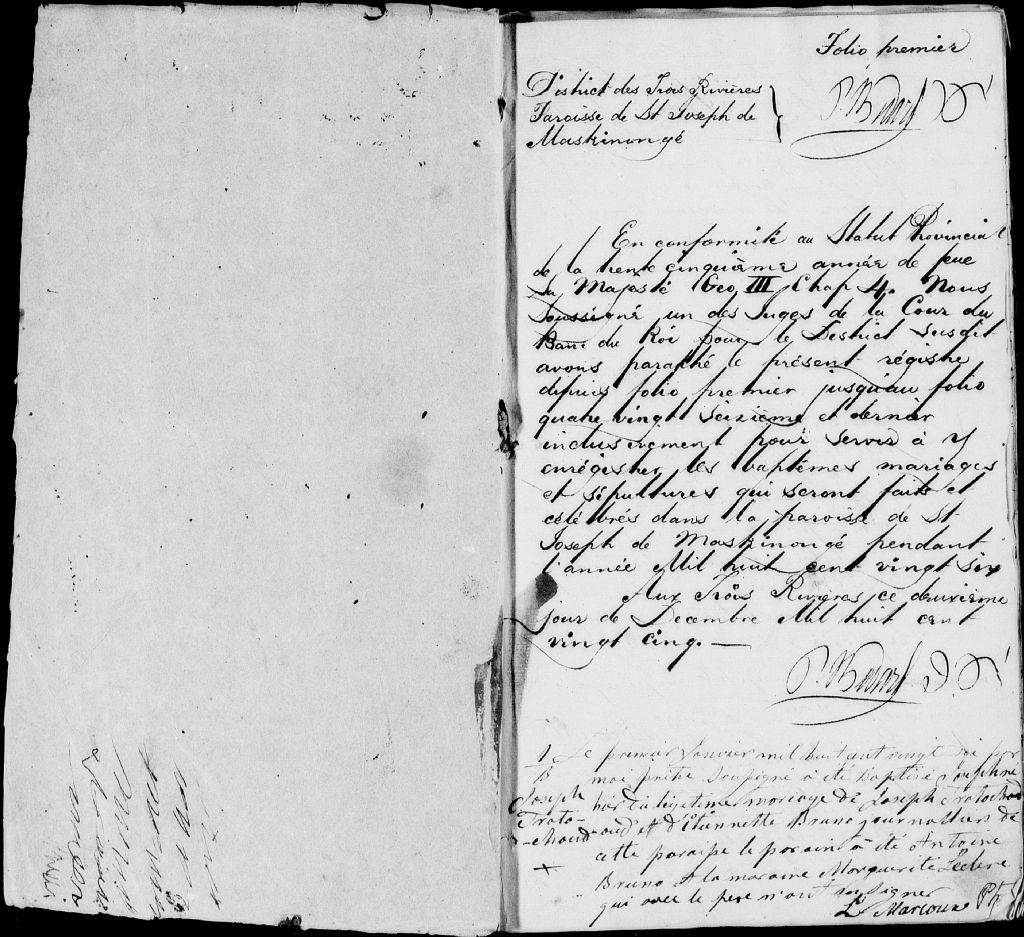 Folio premier
District des Trois Rivières
Paroisse de St Joseph de
Maskinongé
P. Bedard
En conformité au Statut Provincial
de la trente cinquième année de feue
Sa Majesté Geo III Chap 4. Nous
Soussigné un des Juges de la Cour du
Banc du Roi pour le District susdit
avons paraphé le présent régistre
depuis folio premier jusqu'au folio
quatre vingt seizieme et dernier
inclusivement pour servir à y
enrégistrer les baptêmes mariages
et sépultures qui seront faits et
célébrés dans la paroisse de St
Joseph de Maskinongé pendant
l'année Mil huit cent vingt six
Aux Trois Rivières ce deuxième
jour de Decembre Mil huit cent
vingt cinq. —
P. Bedard
1 Le premier Janvier mil huit cent vingt six par
B moi prêtre Soussigné à été Baptisé
Joseph du légitime mariage de Joseph
et d'Etiennette Bruno journalliers de
cette paroisse le parain à été Antoine
+ Bruno & la maraine Morguerite Leclere
qui avec le pere n'ont su signer
L. Marcoux Ptr